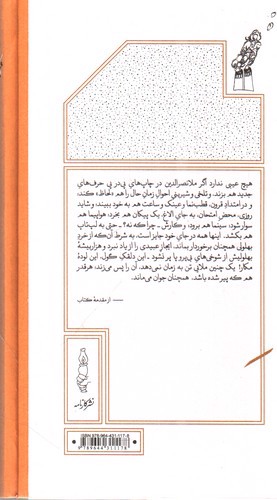 هیچ عیبی ندارد اگر ملانصرالدین در چاپ‌های پی‌در پی حرف‌های
جدید هم بزند، و تلخی و شیرینی احوالِ زمانِ حال را هم «لحاظ» کند،
و در امتدادِ قرون، قطب‌نما و عینک و ساعت هم به خود ببیند؛ و شاید
روزی، محض امتحان، به جای الاغ، یک پیکان هم بخرد، هواپیما هم
سوار شود، سینما هم برود، و کارش ـ چرا که نه؟ ـ حتی به لپ‌تاپ
هم بکشد. اینها همه در جای خود جایز است، به شرط آن که از خردِ
بهلولی همچنان برخوردار بماند، ایجاز عبیدی را از یاد نبرد و هزار بیشهٔ
بهلولیش از شوخی‌های بی‌پروا پر نشود. ـ این دلقک گول، این لودهٔ
مکار! یک چنین ملایی تن به زمان نمی‌دهد، آن را پس می‌زند؛ هرقدر
هم که پیر شده باشد، همچنان جوان می‌ماند.
— از مقدمهٔ کتاب
نشر کارنامه
ISBN 978-964-431-117-8
9789644311178